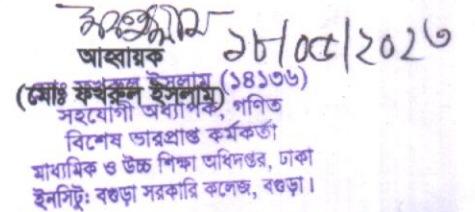 ১৮/০৫/২০২৩
আহ্বায়ক
মোঃ ফখরুল ইসলাম (১৪১৩৬)
(মোঃ ফখরুল ইসলাম)
সহযোগী অধ্যাপক, গণিত
বিশেষ ভারপ্রাপ্ত কর্মকর্তা
মাধ্যমিক ও উচ্চ শিক্ষা অধিদপ্তর, ঢাকা
ইনসিটু: বগুড়া সরকারি কলেজ, বগুড়া।